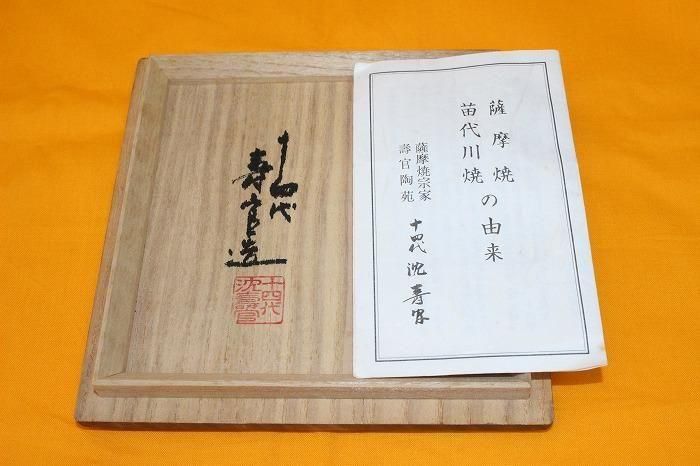 薩摩焼
苗代川焼
の由来
薩摩焼宗家
壽官陶苑
十四代 沈 壽官
十四代
寿官造
十四代
沈壽官